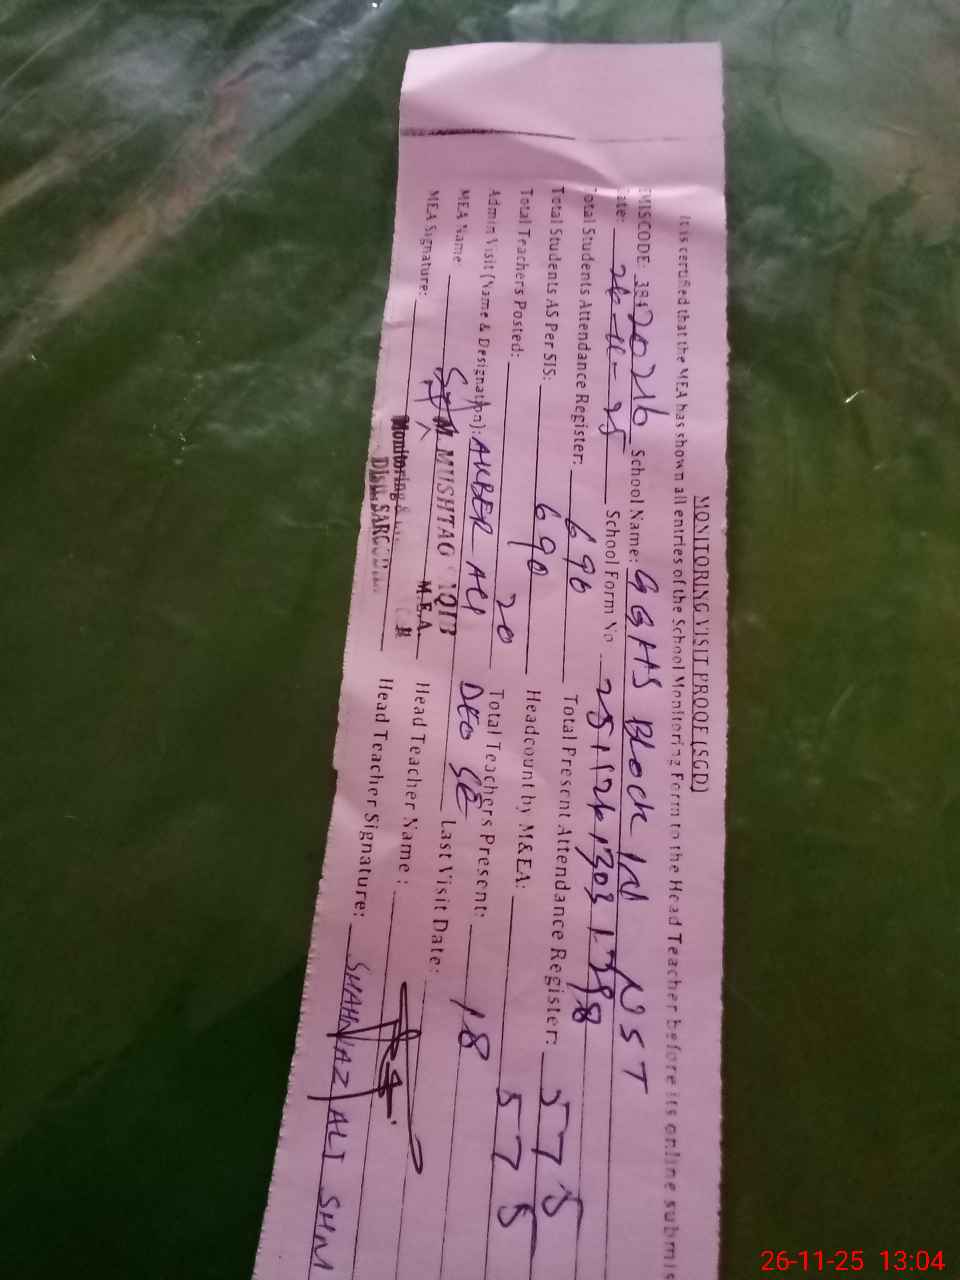 MONITORING VISIT PROOF (SGD)
It is certified that the MEA has shown all entries of the School Monitoring Form to the Head Teacher before its online submis
EMISCODE: 38420216 School Name: GGHS Block IN NST
Date: 26-11-25 School Form No
Total Students Attendance Register: 690 Total Present Attendance Register: 575
Total Students AS Per SIS: 690 Headcount by M&EA: 575
Total Teachers Posted: 20 Total Teachers Present: 18
Admin Visit (Name & Designation): AKBER ALI DEO SE Last Visit Date:
MEA Name: M. MUSHTAQ M.E.A Head Teacher Name:
MEA Signature: Monitoring & Head Teacher Signature: SHAHNAZ ALI SHM
Distt. SARGODHA
26-11-25 13:04